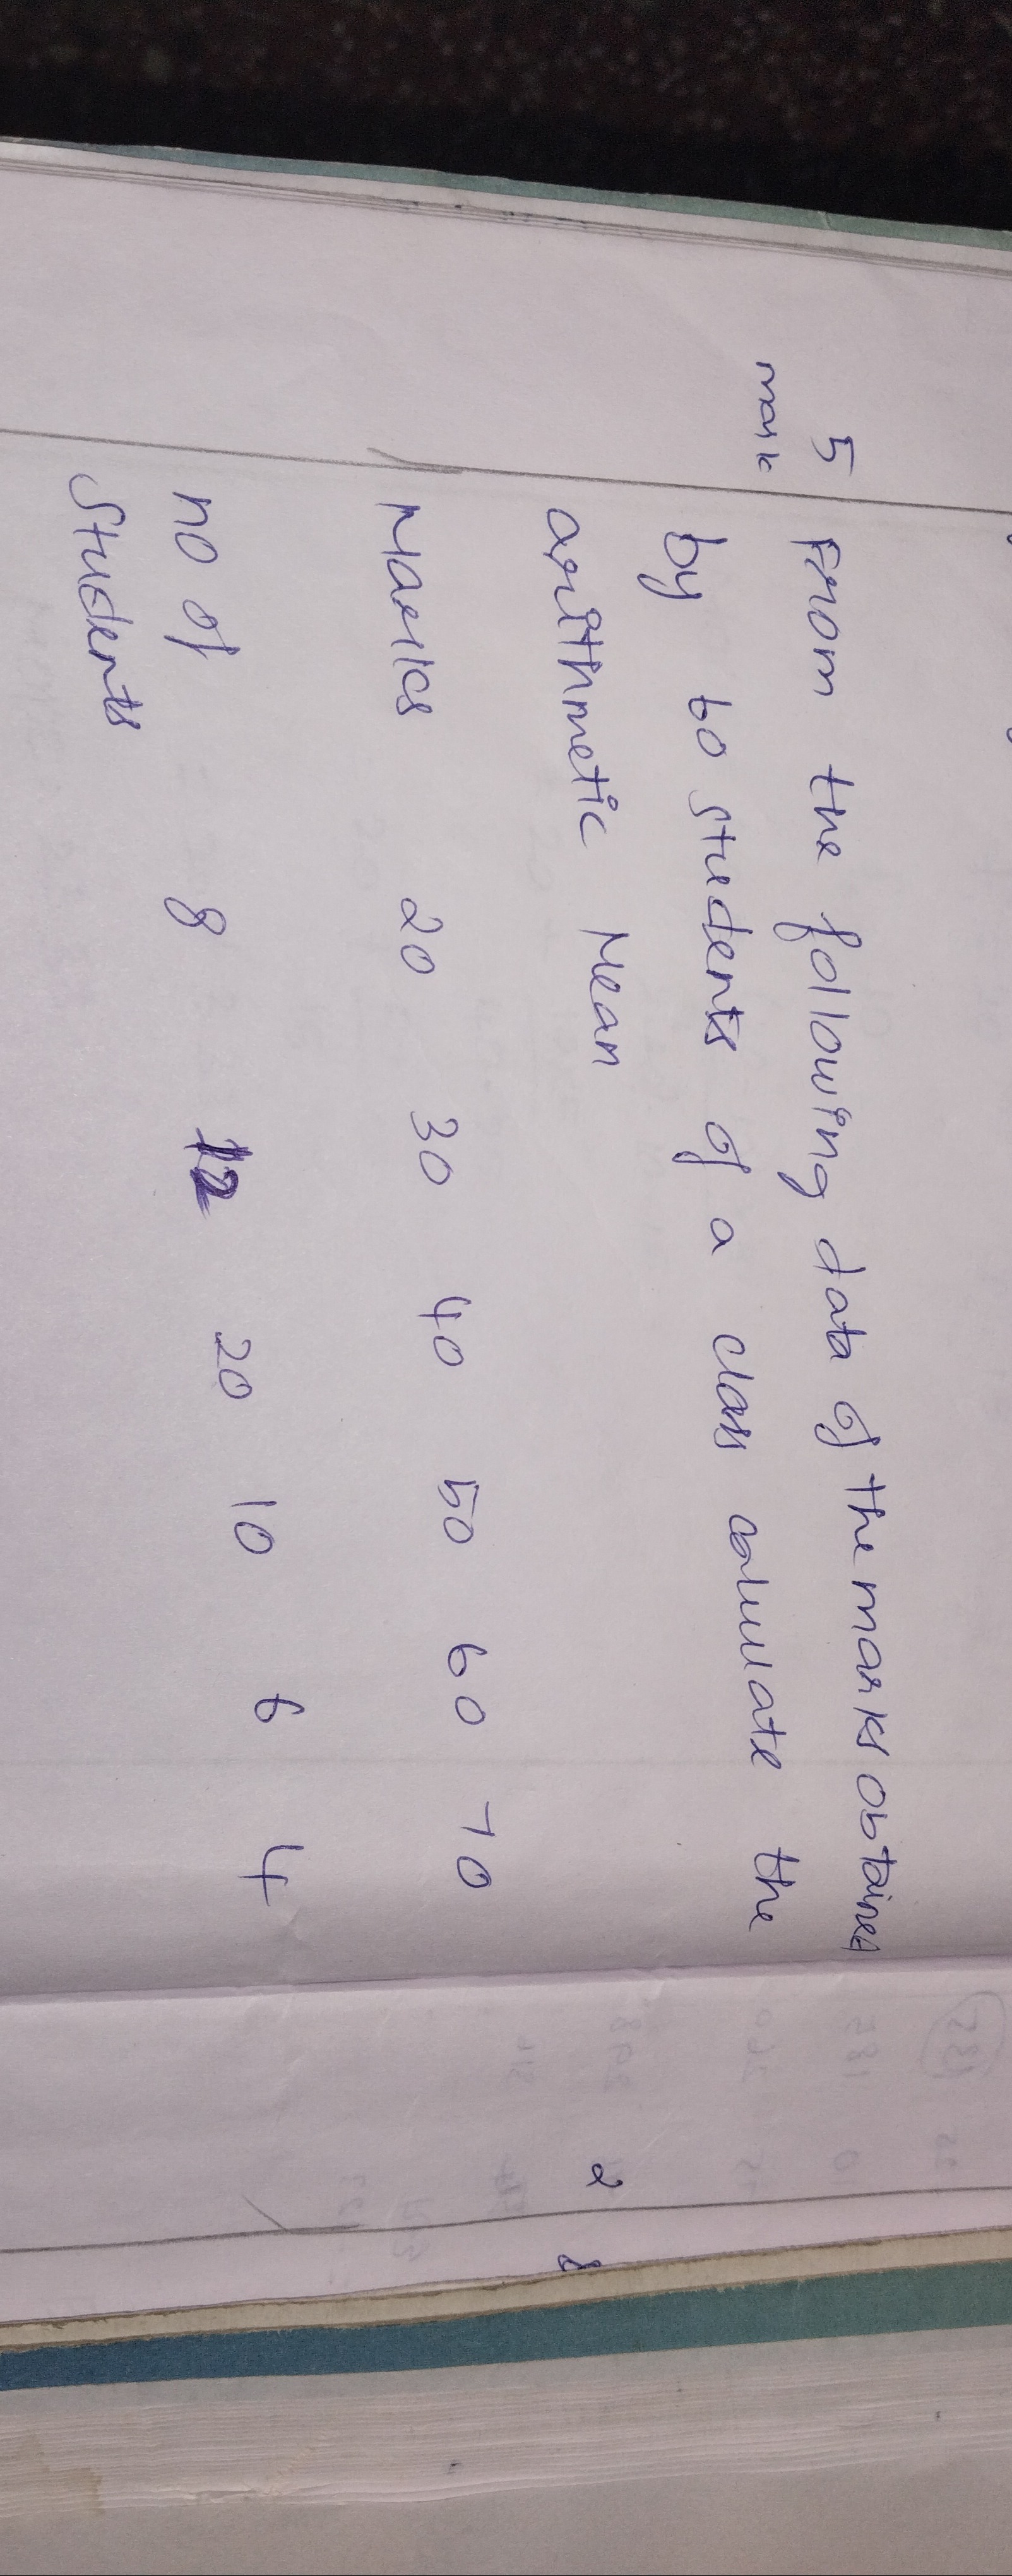 5 From the following data of the marks obtained
mark by 60 students of a class calculate the
arithmetic Mean
Marks 20 30 40 50 60 70
no of 8 12 20 10 6 4
Students
2 8